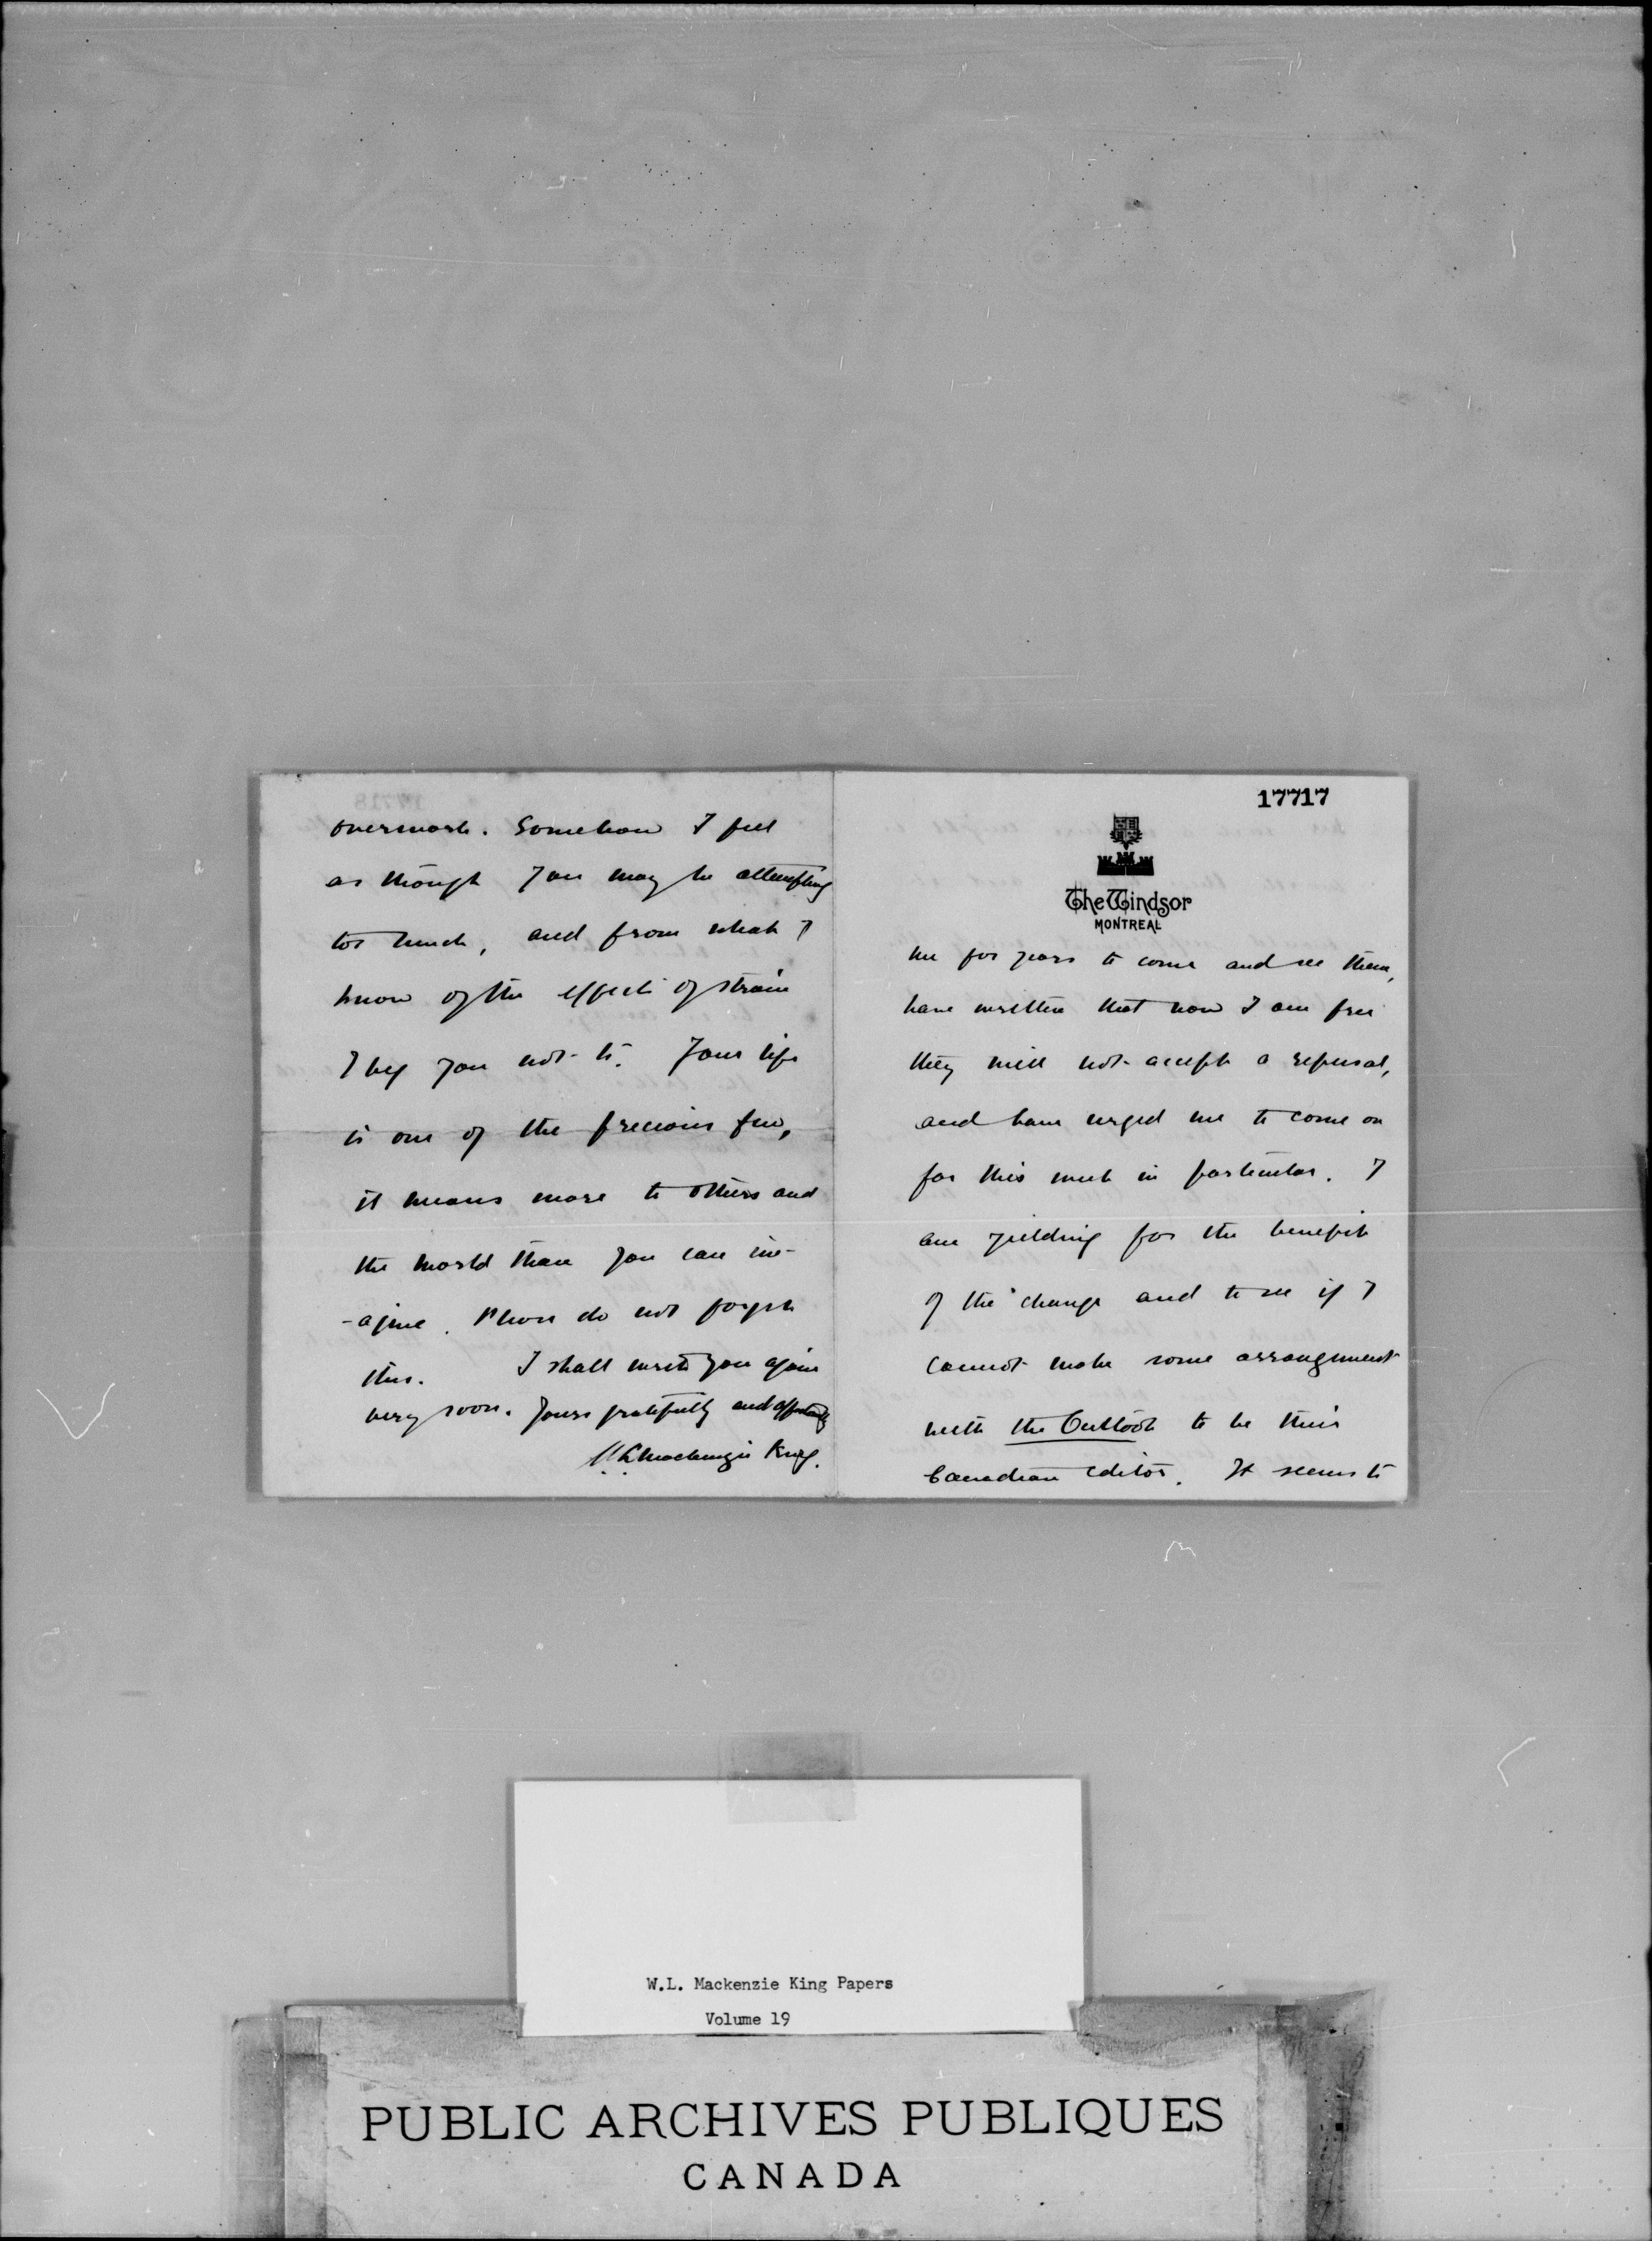 overwork. Somehow I feel
as though you may be attempting
too much, and from what I
know of the effects of strain
I beg you not to. Your life
is one of the precious few,
it means more to others and
the world than you can im-
-agine. Please do not forget
this. I shall write you again
very soon. Yours gratefully and affectionately
W.L. Mackenzie King.
17717
The Windsor
MONTREAL
me for years to come and see them,
have written that now I am free
they will not accept a refusal,
and have urged me to come on
for this week in particular. I
am yielding for the benefit
of the change and to see if I
cannot make some arrangement
with the Outlook to be their
Canadian editor. It seems to
W.L. Mackenzie King Papers
Volume 19
PUBLIC ARCHIVES PUBLIQUES
CANADA